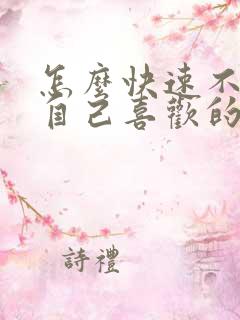 怎麼快速不
自己喜歡的
詩禮